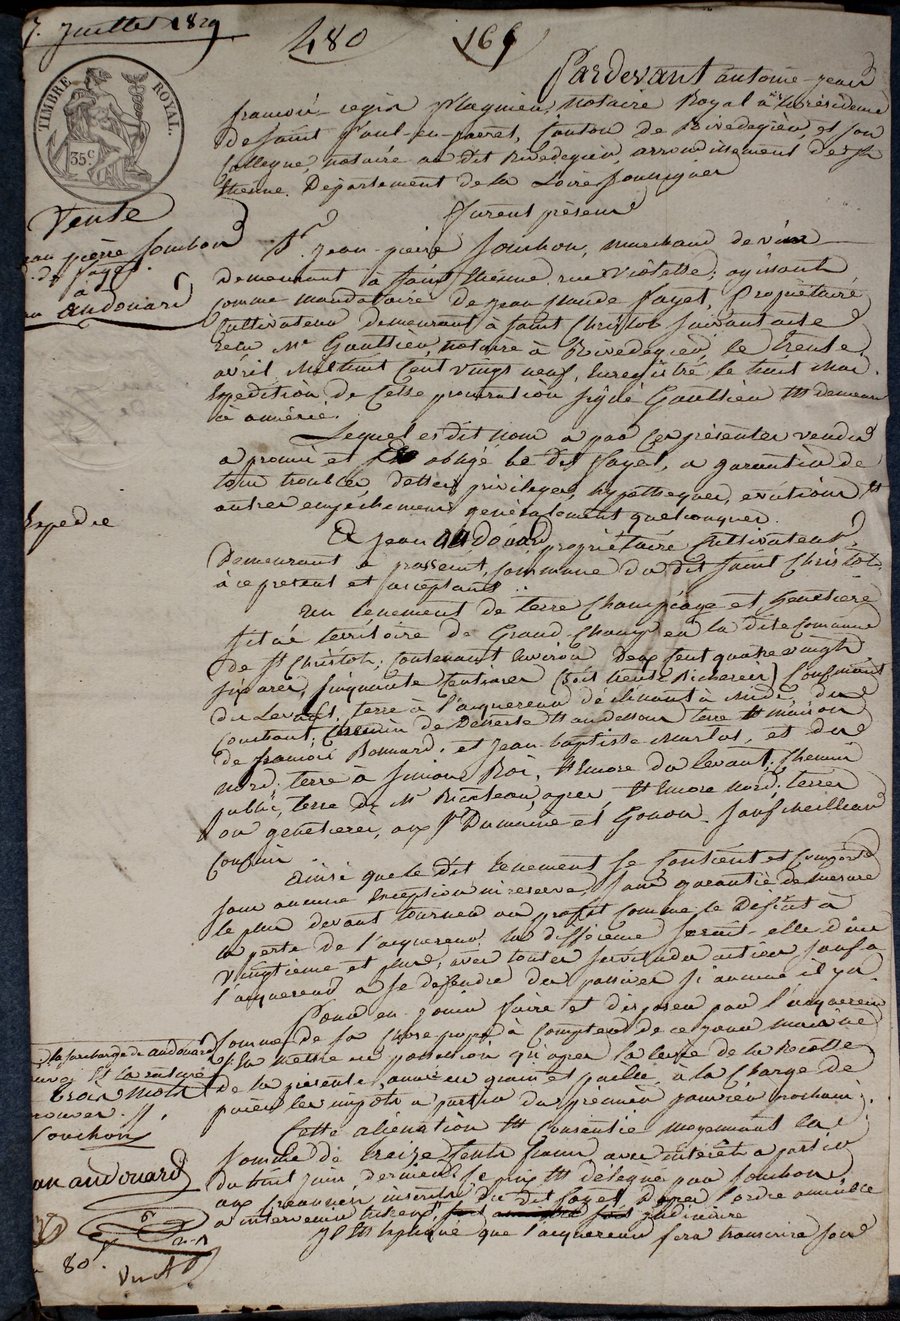 7. Juillet 1829
480 166
TIMBRE ROYAL.
35 c
Pardevant antoine-jean
françois-regis plagnieu, notaire Royal à la résidence
de Saint Paul-en-jarret, Canton de Rivedegier, et son
Collegue, notaire au dit Rivedegier, arrondissement de St
Etienne, Département de la Loire soussignés
Furent présens
Vente
jean pierre Souchon
de fayet
à
jean audouard
Sr. Jean-pierre Souchon, marchand de vin
demeurant à Saint Etienne, rue Violette; agissant
comme mandataire de jean Claude fayet, Propriétaire
Cultivateur demeurant à Saint Christot suivant acte
reçu Me Gaultier, notaire à Rivedegier le trente
avril mil huit Cent vingt neuf, Enregistré le huit Mai
Expédition de Cette procuration signé Gaultier Est demeurée
ci annexée.
Lequel es dit nom a par Ces présentes vendu
a promis et obligé le dit fayet, a garantir de
tous troubles dettes privileges hypotheques, evictions et
autres empêchemens généralement quelconques.
Expedié
A Jean audouard, propriétaire Cultivateur
Demeurant a Commune du dit Saint Christot
à ce présent et acceptant
Un tenement de terre Champéage et genetiere
situé territoire de Grand-Champ en la dite Commune
de St Christot; Contenant Environ Deux Cent quatre vingt
six ares, Cinquante Centiares (soit trente Bicherées) Confinant
du Levant, terre à l'acquereur déclinant à midi, du
Couchant, Chemin de Déserte Et audessous terre Et maison
de françois Bonnard, et Jean-baptiste Martos, et du
nord, terre à Simon Roi, Encore du levant, Chemin
public, terre de Mr après, Et Encore nord, terres
ou genetieres, aux Srs Dumaine et Gonon. Sauf meilleurs
Confins
Ainsi que le dit tenement se Contient et Comporte
sans aucune Exception ni reserve, sans garantie de mesure
le plus devant tourner au profit comme le Déficit à
la perte de l'acquereur, la différence serait-elle d'un
vingtieme et plus, avec toutes servitudes actives sauf a
l'acquereur a se defendre des passives si aucune il y a.
Pour en jouir faire et disposer par l'acquereur
comme de sa Chose propre à Compter de ce jour mais ne
se mettre en possession qu'apres la levée de la Recolte
de la présente année en grains et paille, à la Charge de
payer les impots a partir du premier janvier prochain.
la surcharge de audouard
renvoi Et la rature
trois mots
approuvés.
Souchon
jean audouard
80.
Cette aliénation Est Consentie moyennant la
somme de treize Cents francs avec intérêts a partir
du huit juin dernier, Ce prix Est délégué par Souchon
aux Creanciers inscrits du dit fayet D'apres l'ordre amiable
a intervenir judiciaire
Il Est Expliqué que l'acquereur fera transcrire son